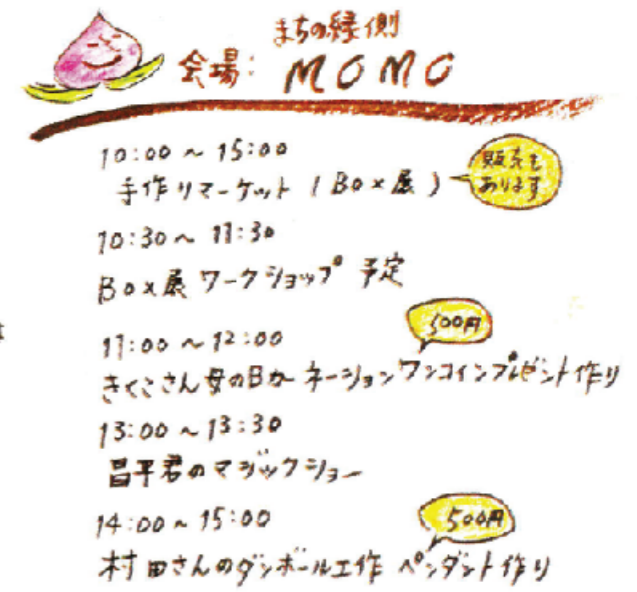 まちの縁側
会場: MOMO
10:00 ~ 15:00
手作りマーケット (Box展)
販売も
あります
10:30 ~ 11:30
Box展 ワークショップ 予定
11:00 ~ 12:00
500円
きくこさん 母の日カーネーションワンコインプレゼント作り
13:00 ~ 13:30
昌平君のマジックショー
14:00 ~ 15:00
500円
村田さんのダンボール工作 ペンダント作り